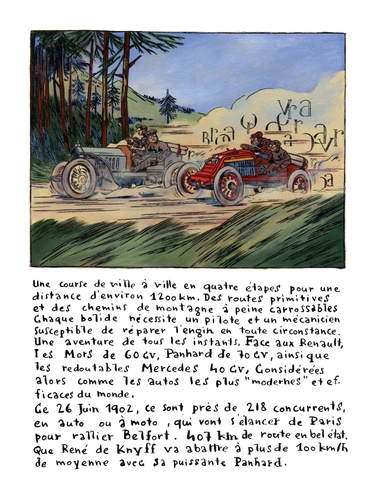 Vra
Une course de ville à ville en quatre étapes pour une
distance d'environ 1200km. Des routes primitives
et des chemins de montagne à peine carrossables
Chaque bolide nécessite un pilote et un mécanicien
susceptible de réparer l'engin en toute circonstance.
Une aventure de tous les instants. Face aux Renault,
les Mors de 60 CV, Panhard de 70 CV, ainsi que
les redoutables Mercedes 40 CV, Considérées
alors comme les autos les plus "modernes" et ef-
ficaces du monde.
Ce 26 Juin 1902, ce sont près de 218 concurrents,
en auto ou à moto, qui vont s'élancer de Paris
pour rallier Belfort. 407 km de route en bel état.
Que René de Knyff va abattre à plus de 100km/h
de moyenne avec sa puissante Panhard.